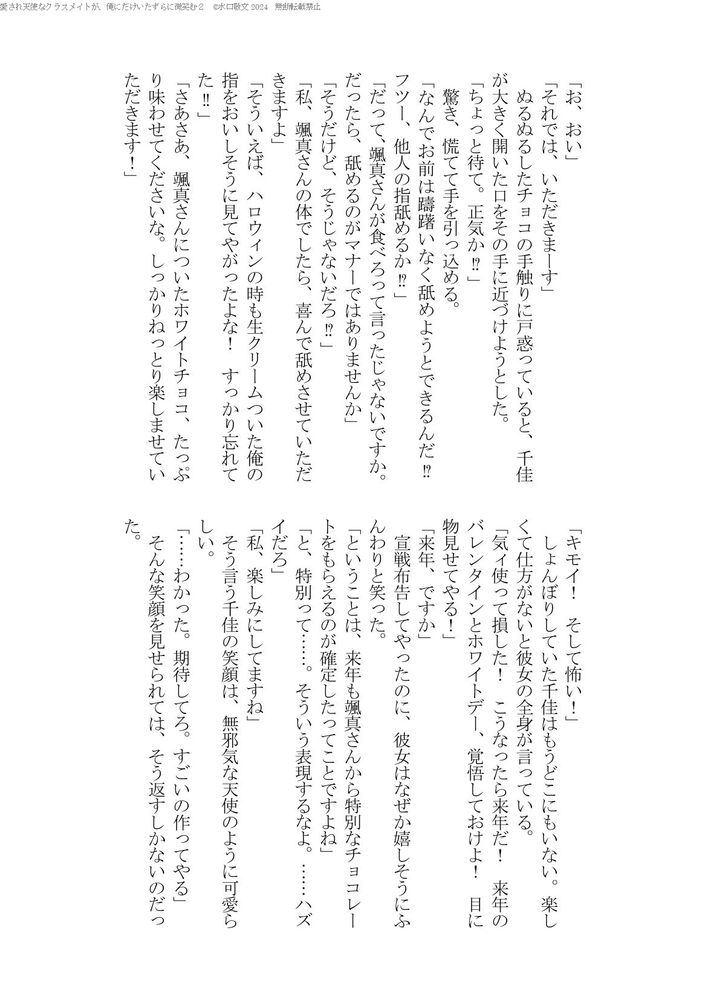 愛され天使なクラスメイトが、俺にだけいたずらに微笑む２　©水口敬文 2024　無断転載禁止
「お、おい」
「それでは、いただきまーす」
　ぬるぬるしたチョコの手触りに戸惑っていると、千佳
が大きく開いた口をその手に近づけようとした。
「ちょっと待て。正気か⁉」
　驚き、慌てて手を引っ込める。
「なんでお前は躊躇いなく舐めようとできるんだ⁉
フツー、他人の指舐めるか⁉」
「だって、颯真さんが食べろって言ったじゃないですか。
だったら、舐めるのがマナーではありませんか」
「そうだけど、そうじゃないだろ⁉」
「私、颯真さんの体でしたら、喜んで舐めさせていただ
きますよ」
「そういえば、ハロウィンの時も生クリームついた俺の
指をおいしそうに見てやがったよな！　すっかり忘れて
た‼」
「さあさあ、颯真さんについたホワイトチョコ、たっぷ
り味わわせてくださいな。しっかりねっとり楽しませてい
ただきます！」
「キモイ！　そして怖い！」
　しょんぼりしていた千佳はもうどこにもいない。楽し
くて仕方がないと彼女の全身が言っている。
「気ィ使って損した！　こうなったら来年だ！　来年の
バレンタインとホワイトデー、覚悟しておけよ！　目に
物見せてやる！」
「来年、ですか」
　宣戦布告してやったのに、彼女はなぜか嬉しそうにふ
んわりと笑った。
「ということは、来年も颯真さんから特別なチョコレー
トをもらえるのが確定したってことですよね」
「と、特別って……。そういう表現するなよ。……ハズ
イだろ」
「私、楽しみにしてますね」
　そう言う千佳の笑顔は、無邪気な天使のように可愛ら
しい。
「……わかった。期待してろ。すごいの作ってやる」
　そんな笑顔を見せられては、そう返すしかないのだっ
た。